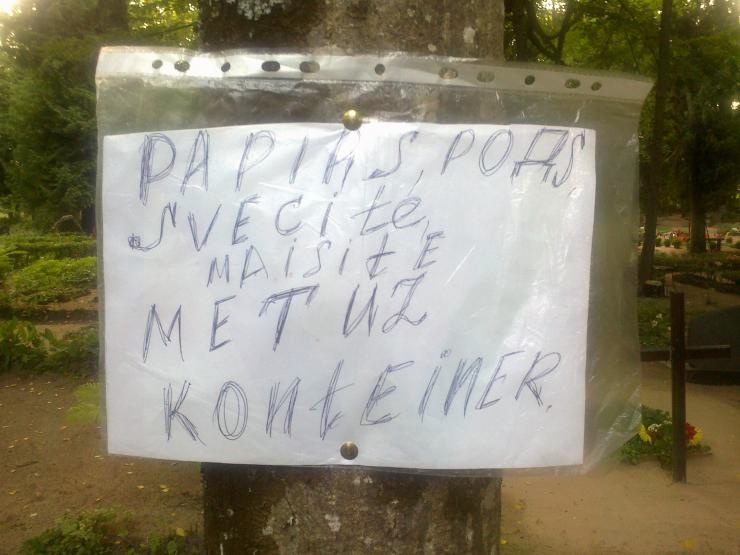 PAPIRS, POДS
SVECitE,
MAiSitE
MET UZ
KONtEiNER.